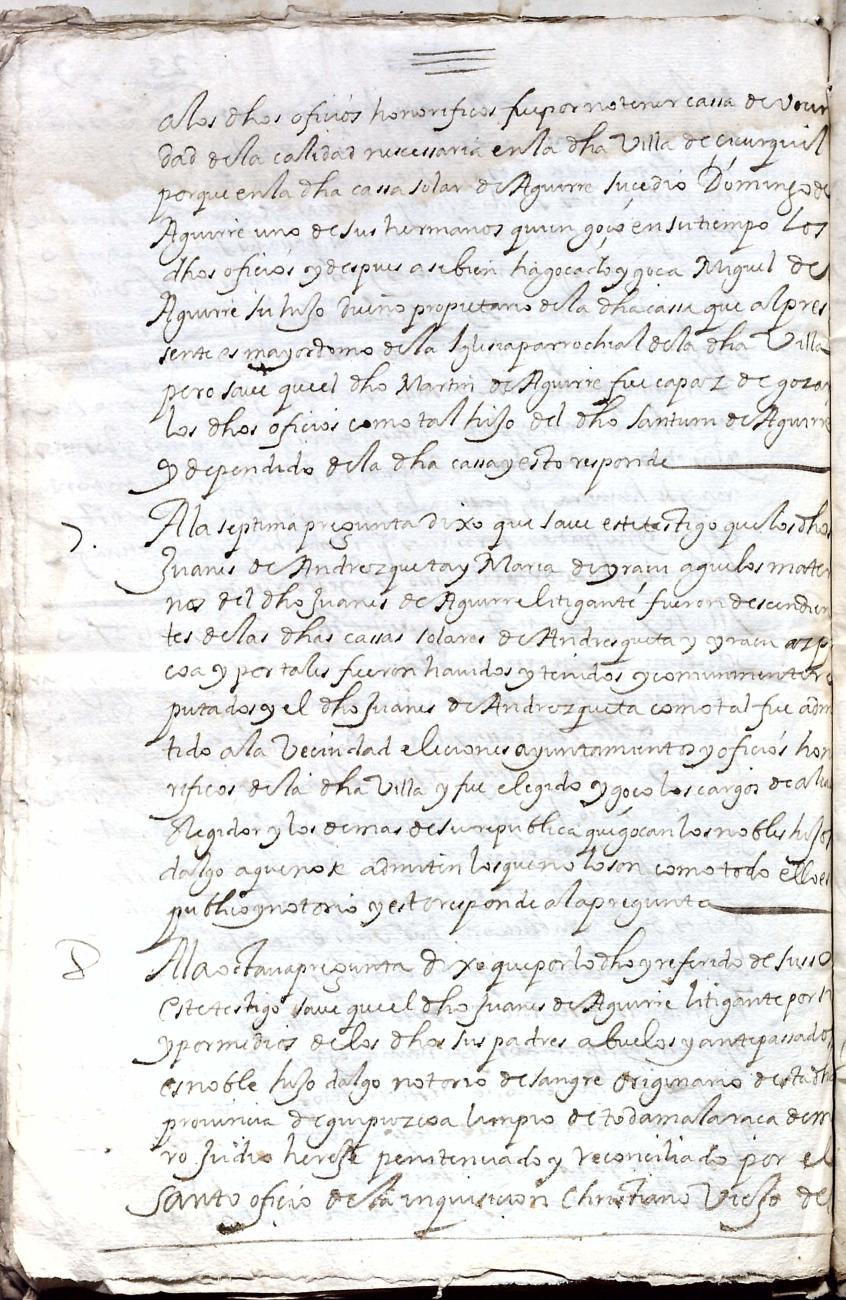 a los dhos oficios honorificos fue por no tener cassa de vecin
dad de la calidad necessaria en la dha Villa de cicurquil
porque en la dha cassa solar de Aguirre sucedio Domingo de
Aguirre uno de sus hermanos quien goço en su tiempo los
dhos oficios y despues aca bien ha goçado y goça Miguel de
Aguirre su hijo dueño propietario de la dha cassa que al pres
sente es mayordomo de la Iglesia parrochial de la dha Villa
pero save que el dho Martin de Aguirre fue capaz de goza
los dhos oficios como tal hijo del dho Santuru de Aguirre
y dependido de la dha cassa y esto responde
7. A la septima pregunta dixo que save este testigo que los dhos
Juanes de Andrezqueta y Maria de yraçu aguelos mater
nos del dho Juanes de Aguirre litigante fueron descendien
tes de las dhas cassas solares de Andresqueta y yraçu azp
coa y por tales fueron havidos y tenidos y comunmente re
putados y el dho Juanes de Andrezqueta como tal fue adm
tido a la Vecindad eleciones ayuntamientos y oficios hon
rificos de la dha Villa y fue elegido y goço los cargos de alca
Regidor y los demas de su republica que goçan los nobles hijos
dalgo a que no se admiten los que no lo son como todo ello es
publico y notorio y esto responde a la pregunta
8 A la octava pregunta dixo que por lo dho y referido de susso
este testigo save que el dho Juanes de Aguirre litigante por si
y por medios de los dhos sus padres abuelos y antepassados
es noble hijo dalgo notorio de sangre originario de esta dha
provincia de guipuzcoa limpio de toda mala raca de m
ro Judio hereje penitenciado y reconciliado por el
Santo oficio de la inquisicion Christiano Viejo de